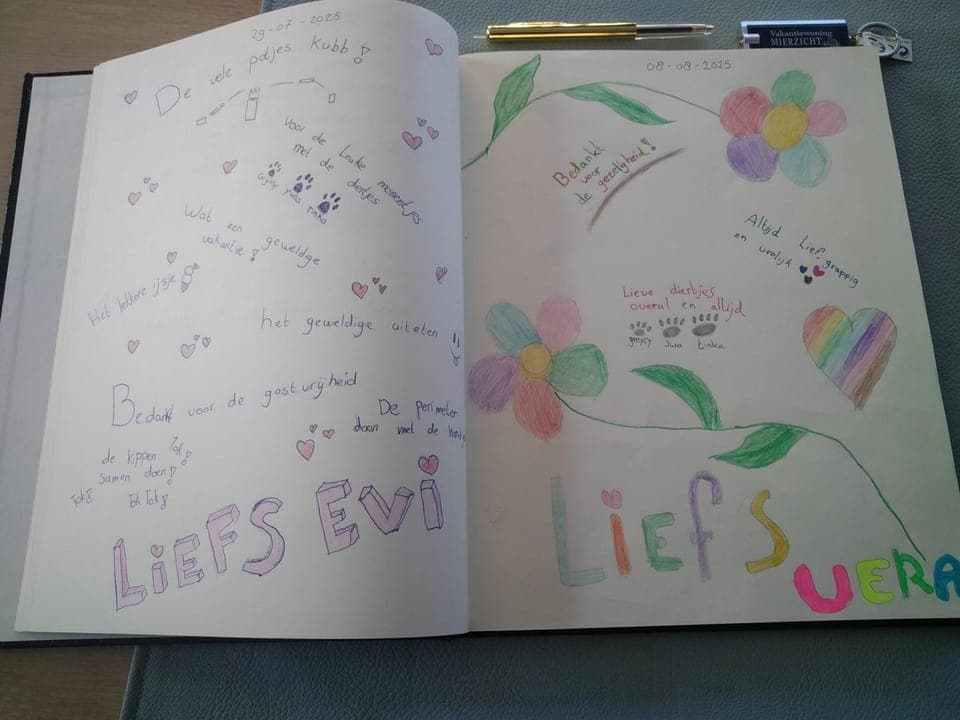 29-07-2025
De vele potjes kubb!
Voor de leuke momentjes
met de diertjes
Yuna Tinka
Wat een geweldige
vakantie!
Het lekkere ijsje
het geweldige uiteten
Bedankt voor de gostvrijheid
De perimeter
doen met de
de kippen Tok!
samen doen!
Tok!
Tok Tok!
LIEFS EVI
Vakantiewoning
MIERZICHT
08-08-2025
Bedankt
voor
de gezeligheid!
Altijd Lief, grappig
en vrolijk
Lieve diertjes
overal en altijd
Juna tinka
LiEfS
VERA